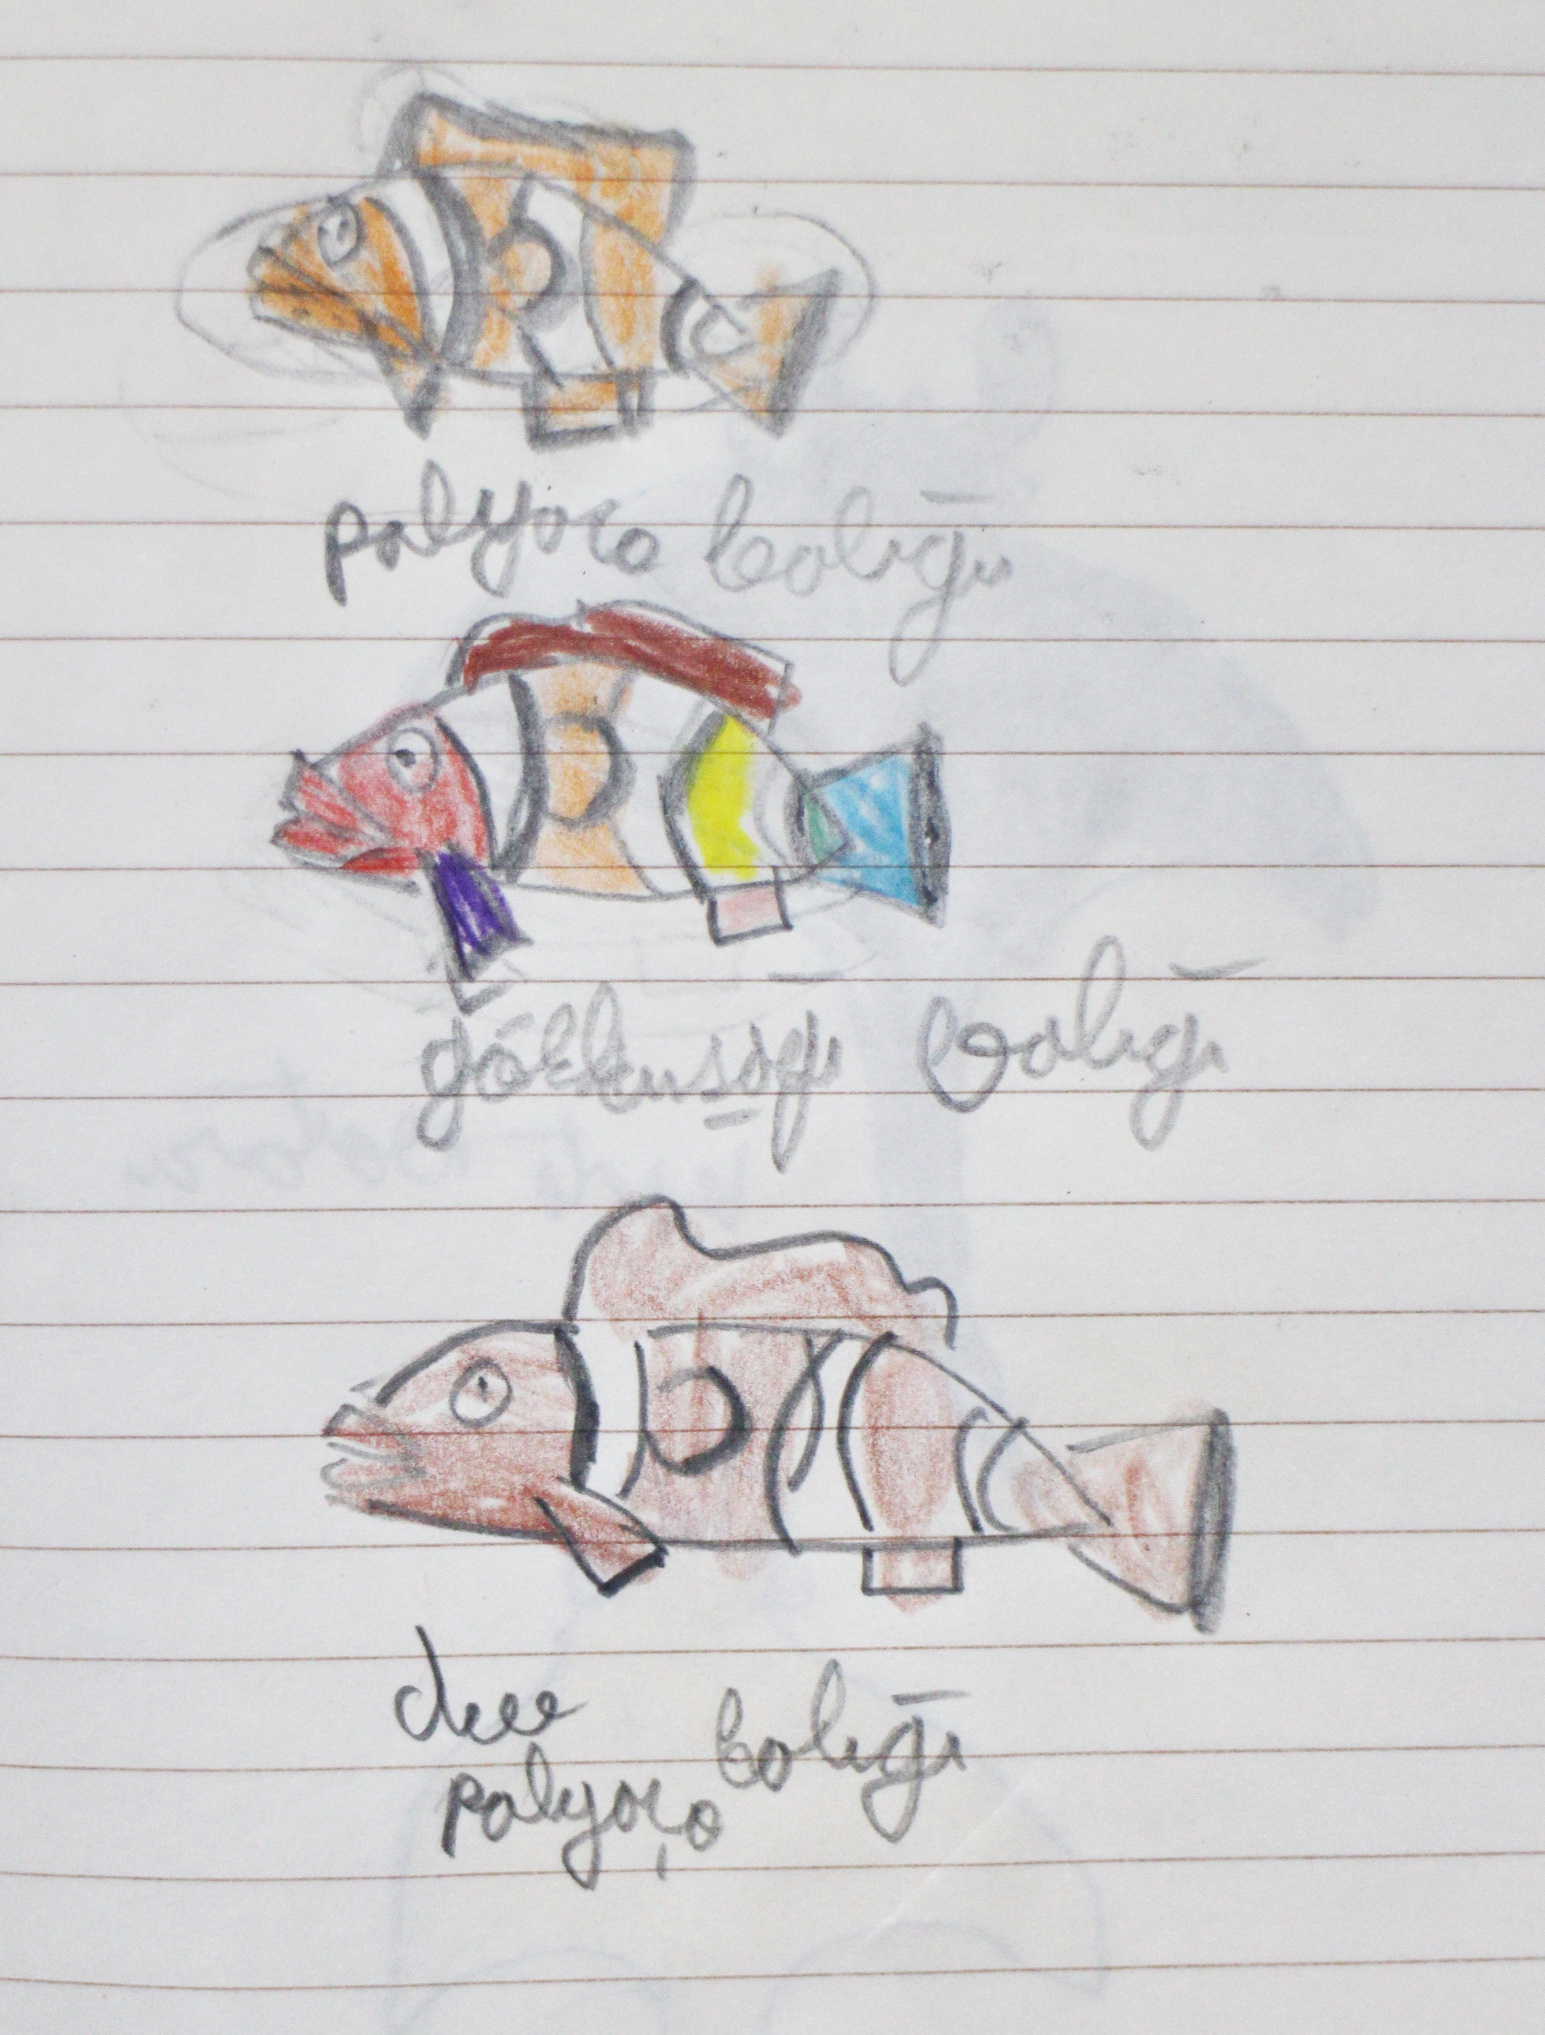 palyaço balığı
gökkuşağı balığı
dece
palyaço balığı